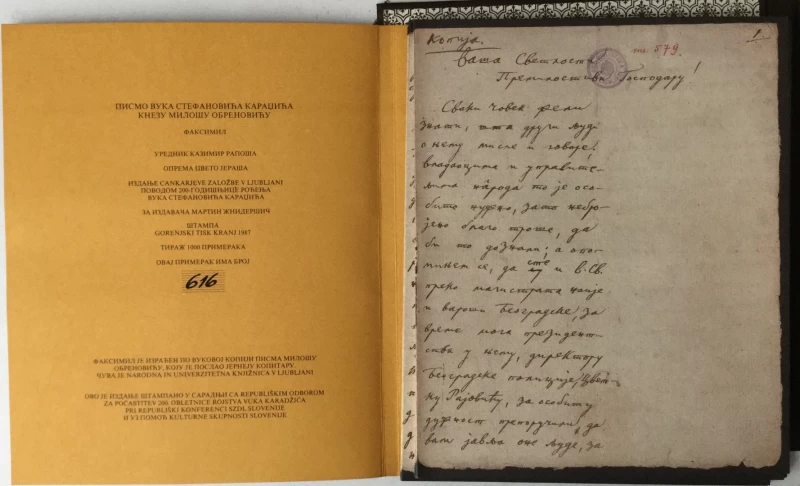 ПИСМО ВУКА СТЕФАНОВИЋА КАРАЏИЋА
КНЕЗУ МИЛОШУ ОБРЕНОВИЋУ
ФАКСИМИЛ
УРЕДНИК КАЗИМИР РАПОША
ОПРЕМА ЦВЕТО ЈЕРАША
ИЗДАЊЕ CANKARJEVE ZALOŽBE V LJUBLJANI
ПОВОДОМ 200-ГОДИШЊИЦЕ РОЂЕЊА
ВУКА СТЕФАНОВИЋА КАРАЏИЋА
ЗА ИЗДАВАЧА МАРТИН ЖНИДЕРШИЧ
ШТАМПА
GORENJSKI TISK KRANJ 1987
ТИРАЖ 1000 ПРИМЕРАКА
ОВАЈ ПРИМЕРАК ИМА БРОЈ
616
ФАКСИМИЛ ЈЕ ИЗРАЂЕН ПО ВУКОВОЈ КОПИЈИ ПИСМА МИЛОШУ
ОБРЕНОВИЋУ, КОЈУ ЈЕ ПОСЛАО ЈЕРНЕЈУ КОПИТАРУ
ЧУВА ЈЕ NARODNA IN UNIVERZITETNA KNJIŽNICA V LJUBLJANI
ОВО ЈЕ ИЗДАЊЕ ШТАМПАНО У САРАДЊИ СА REPUBLIŠKIM ODBOROM
ZA POČASTITEV 200. OBLETNICE ROJSTVA VUKA KARADŽIĆA
PRI REPUBLIŠKI KONFERENCI SZDL SLOVENIJE
И УЗ ПОМОЋ KULTURNE SKUPNOSTI SLOVENIJE
Копија.
1
579.
Ваша Светлости
Премилостиви Господару!
Сваки човек
знати, шта други људи
о њему мисле и говоре;
владаоцима и управите-
љима народа то је осо-
бито нужно, зато небро-
јено благо троше, да
би то дознали; а опо-
мињем се, да сте и В. Св.
преко магистрата наије
и вароши Београдске, за
време мога президент-
ства у њему, директору
Београдске полиције, Цвет-
ку Рајовићу, за особиту
дужност препоручили, да
вам јавља оне људе, за